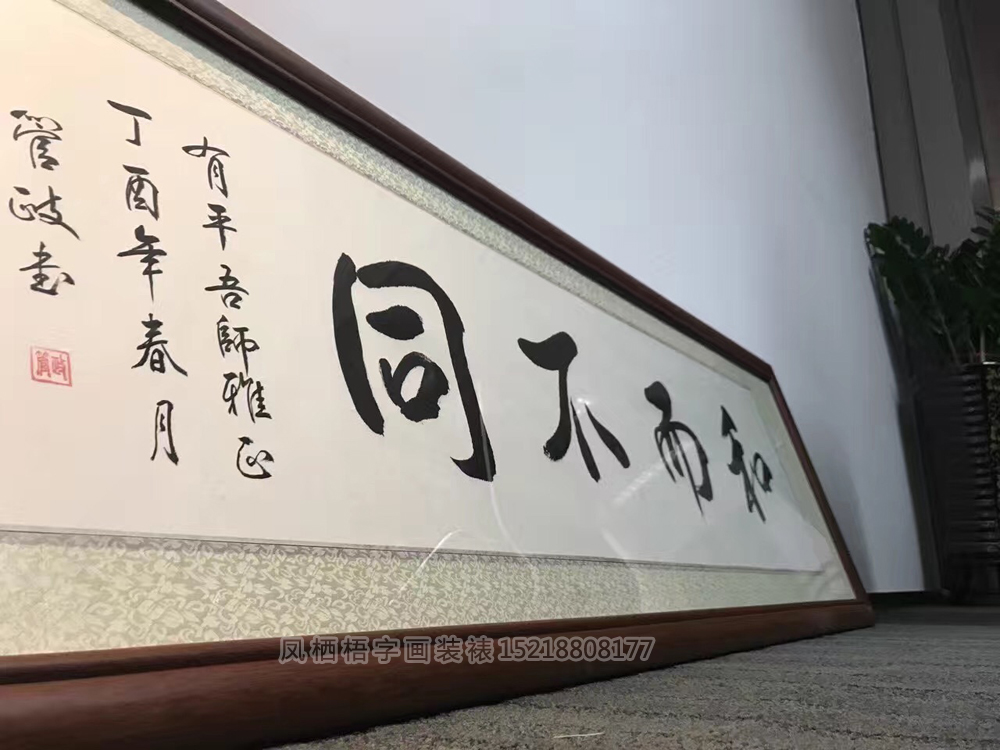 和而不同
有平吾師雅正
丁酉年春月
管政書
凤栖梧字画装裱 15218808177